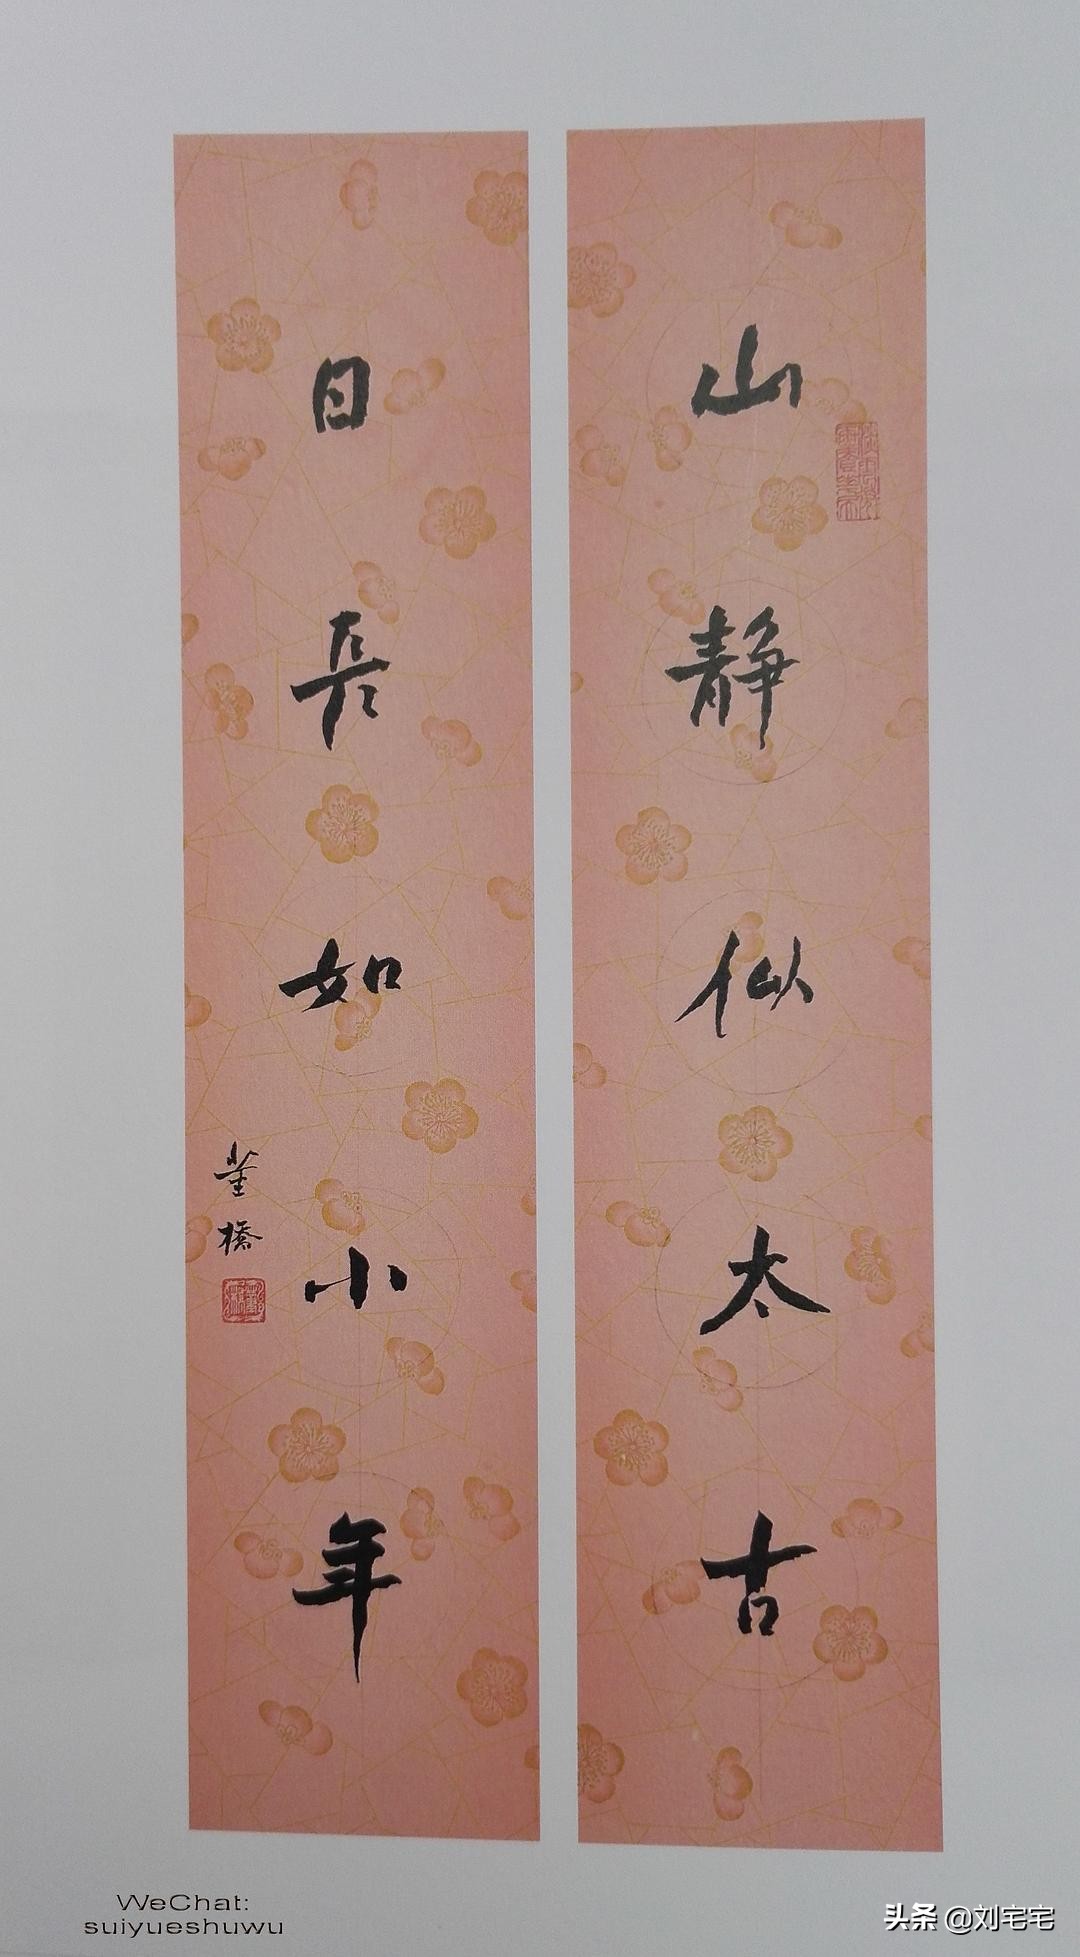 山靜似太古
日長如小年
董橋
WeChat:
suiyueshuwu
头条 @刘宅宅